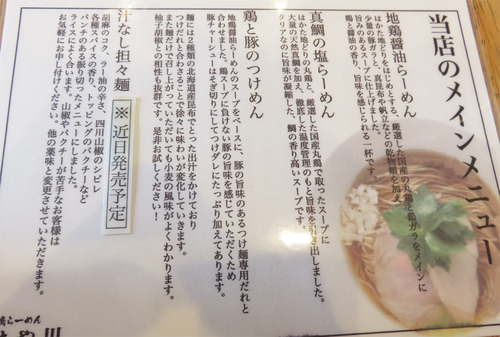 当店のメインメニュー
地鶏醤油らーめん
はかた地どりをはじめとする、厳選した国産の丸鶏と鶏ガラをメインに
少量の豚ガラと、真昆布や帆立などの乾物類を加え、
旨みのあるスープに仕上げました。
鶏と醤油の香り、旨味を感じられる一杯です。
真鯛の塩らーめん
はかた地どりの丸鶏と、厳選した国産丸鶏で取ったスープに
大量の天然真鯛を加え、徹底した温度管理のもと旨味を引き出しました。
クリアなのに旨味が凝縮した、鯛の香り高いスープです。
鶏と豚のつけめん
地鶏醤油らーめんのスープをベースに、豚の旨味のあるつけ麺専用だれと
合わせました。鶏スープに負けない豚の旨味を感じていただくため
豚チャーシューはそぎ切りにしてつけダレにたっぷり加えてあります。
麺には2種類の北海道産昆布でとった出汁をかけており
つけだれと合わさることで徐々に味わいが変化していきます。
また麺だけで召し上がっていただいても小麦の風味がよくわかります。
柚子胡椒との相性も抜群です。是非お試しください!
汁なし担々麺
※近日発売予定
胡麻のコク、ラー油の辛さ、四川山椒のシビレ
各種スパイスの香り、トッピングのパクチーなど
パンチのある振り切ったメニューにしました。
ライスにもよく合います。山椒やパクチーが苦手なお客様は
お気軽にお申し付けください。他の薬味と変更させていただきます。
らーめん